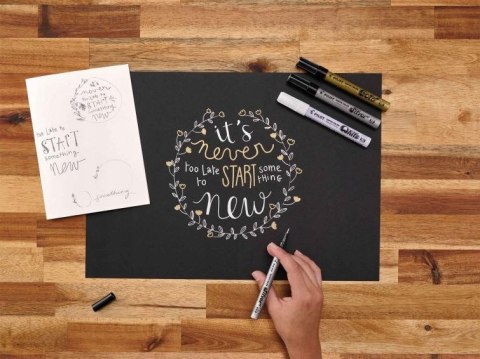 it's
never
too late
to START some
thing
new
it's
never
too late to
START
something
new
too late to
START
something
new
something
PILOT
PILOT
PILOT
White